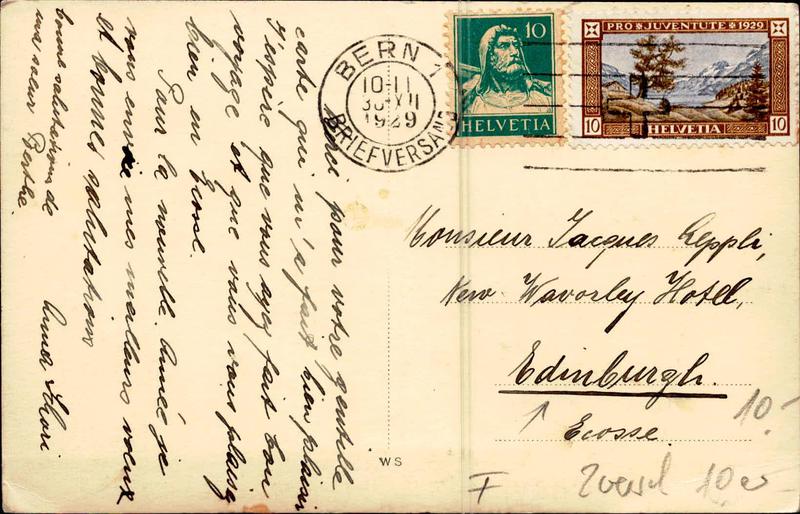 Merci pour votre gentille
carte qui m'a fait bien plaisir
J'espère que vous ayez fait bon
voyage et que vous vous plaisez
bien en Ecosse.
Pour la nouvelle Année je
vous envoie mes meilleurs voeux
et bonnes salutations
bonnes salutations de
ma soeur Berthe.
BERN 1
10-11
30.XII
1929
BRIEFVERSAND
10
HELVETIA
PRO JUVENTUTE 1929
10 HELVETIA 10
Monsieur Jacques Aeppli,
New Waverley Hotel,
Edinburgh.
Ecosse.
10.-
WS